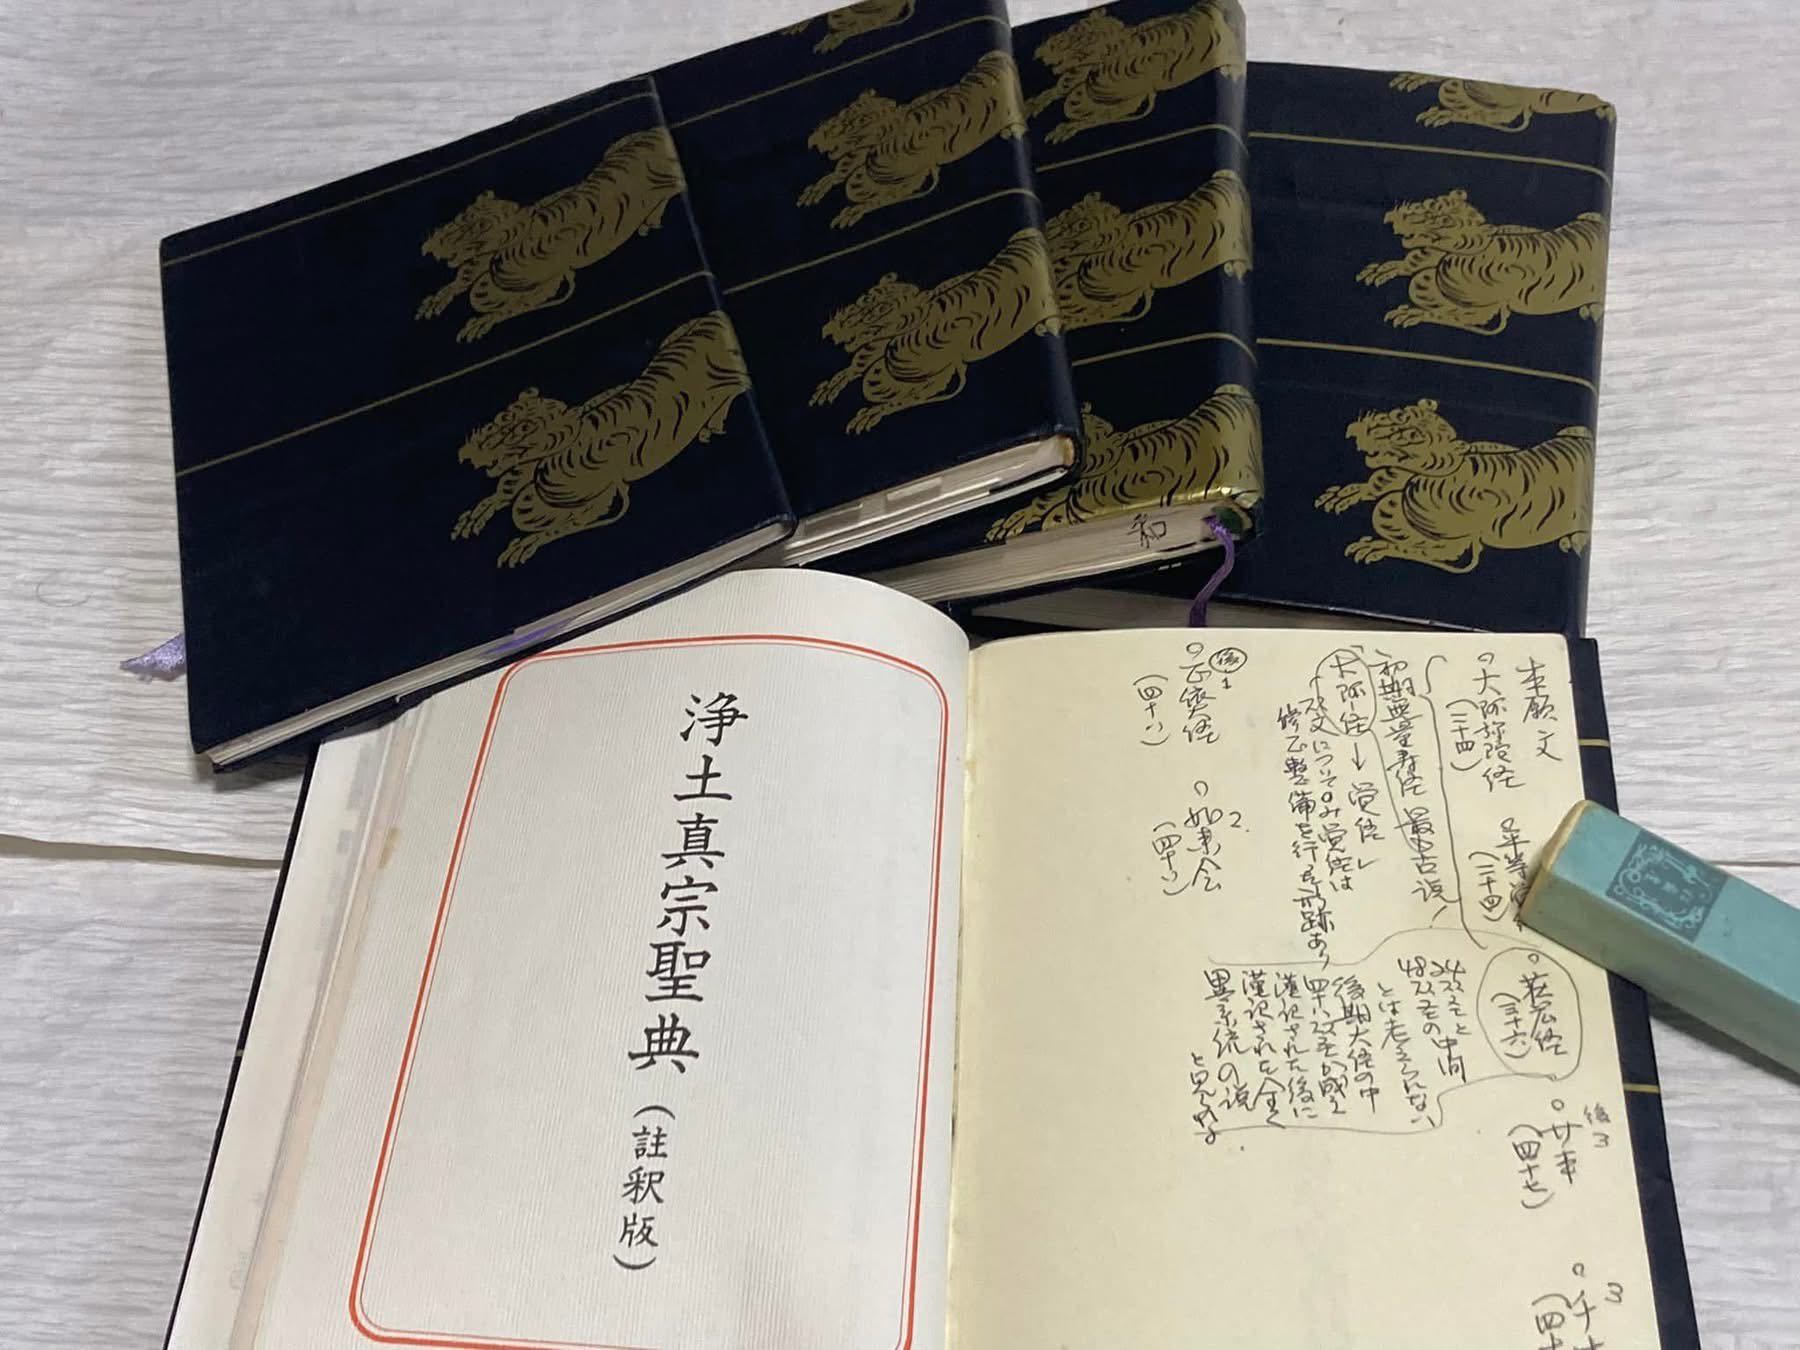 浄土真宗聖典(註釈版)
和
本願文
大阿弥陀経
(二十四)
平等覚
(二十四)
荘厳経
(三十六)
後3
サ本
(四十七)
3
初期無量寿経 最古説!
大阿経→覚経
願文についてのみ覚経は
修正整備を行った形跡あり
24願文と
48願文の中間
とは考えられない
後期大経の中
四十八願文が成立
漢記された後に
漢記された全く
異系統の説
と見る
後1
正依経
(四十八)
2.
如来会
(四十八)